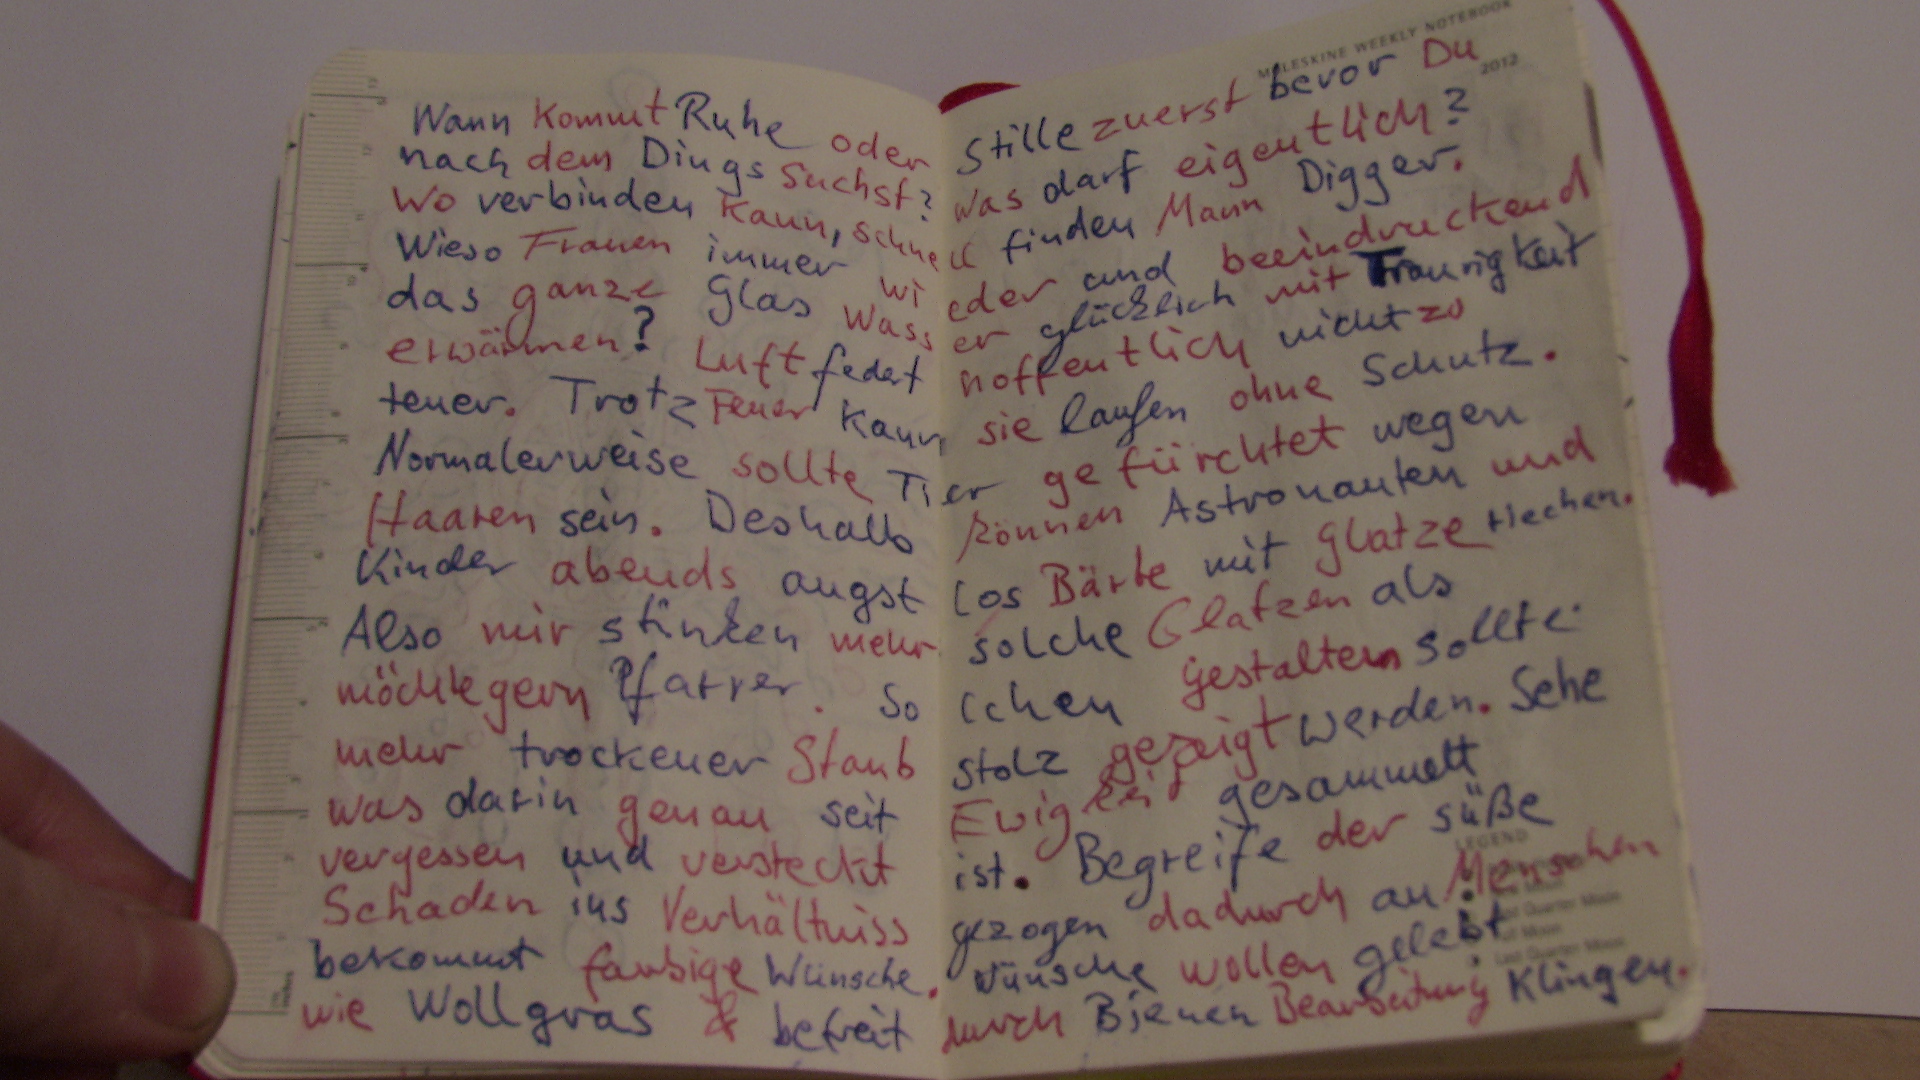 MOLESKINE WEEKLY NOTEBOOK
2012
Wann kommt Ruhe oder Stille zuerst bevor Du
nach dem Dings suchst? Was darf eigentlich?
Wo verbinden kann, schnell finden Mann Digger.
Wieso Frauen immer wieder und beeindruckend
das ganze Glas Wasser glücklich mit Traurigkeit
erwärmen? Luft federt hoffentlich nicht zo
teuer. Trotz Feuer kann sie laufen ohne Schutz.
Normalerweise sollte Tier gefürchtet wegen
Haaren sein. Deshalb können Astronauten und
Kinder abends angstlos Bärte mit Glatze riechen.
Also mir stinken mehr solche Glatzen als
möchtegern Pfarrer. Solchen gestalten sollte
mehr trockener Staub stolz gezeigt werden. Sehe
was darin genau seit Ewigkeit gesammelt
vergessen und versteckt ist. Begreife der süße
LEGEND
Schaden ins Verhältniss gezogen dadurch an Menschen
Quarter Moon
Moon
bekommt farbige Wünsche. Wünsche wollen gelebt
Last Quarter Moon
wie Wollgras & befreit durch Bienen Bearbeitung klingen.